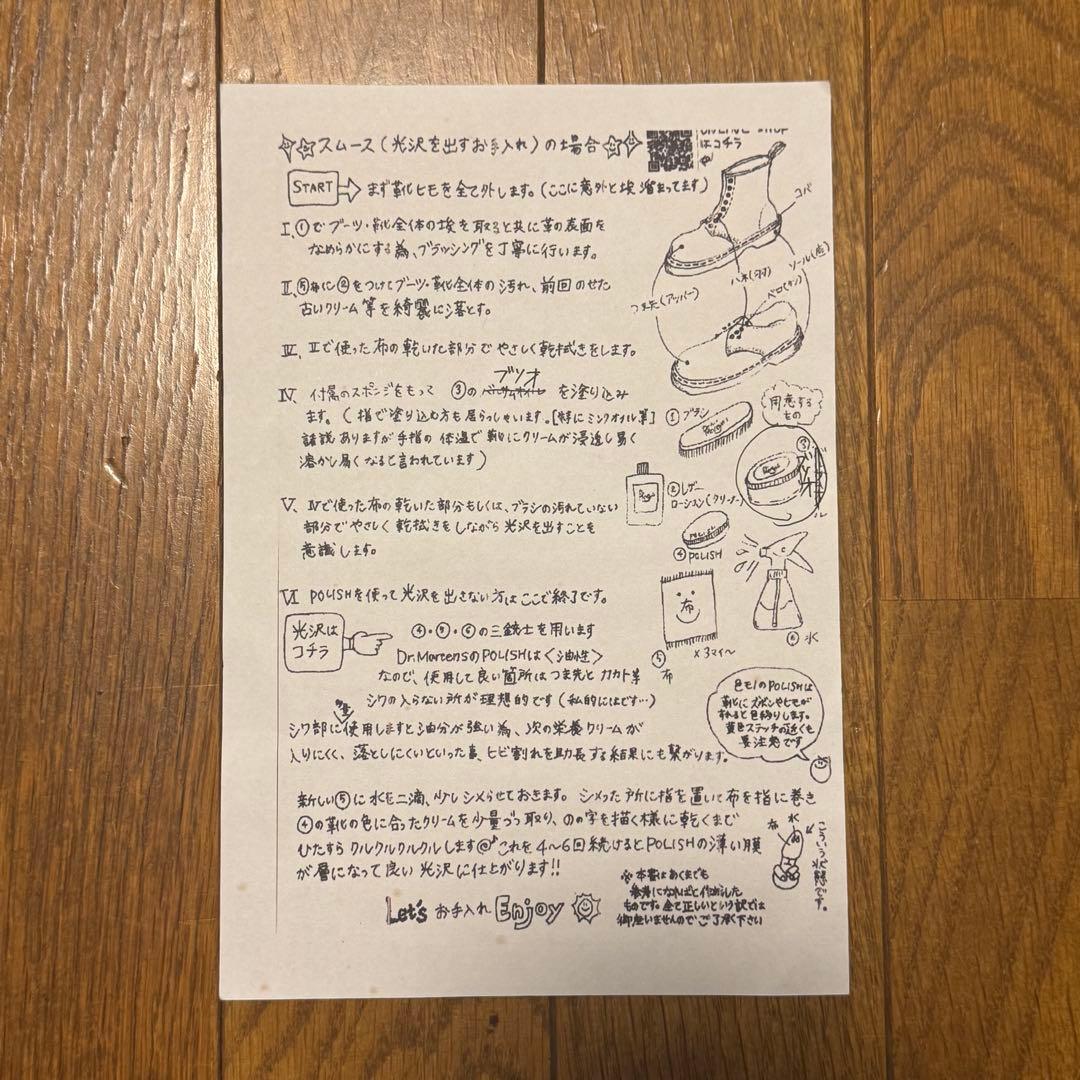 スムース(光沢を出すお手入れ)の場合
はコチラ
START まず靴ヒモを全て外します。(ここに意外と埃溜まってます)
I、①でブーツ・靴全体の埃を取ると共に革の表面を
なめらかにする為、ブラッシングを丁寧に行います。
II、⑤布に②をつけてブーツ・靴全体の汚れ、前回のせた
古いクリーム等を綺麗に落とす。
III、IIで使った布の乾いた部分でやさしく乾拭きをします。
ブツオ
IV 付属のスポンジをもって ③の を塗り込み
ます。(指で塗り込む方も居らっしゃいます。[特にミンクオイル等]
諸説ありますが手指の体温で靴にクリームが浸透し易く
溶かし易くなると言われています)
V、IVで使った布の乾いた部分もしくは、ブラシの汚れていない
部分でやさしく乾拭きをしながら光沢を出すことを
意識します。
VI POLISHを使って光沢を出さない方はここで終了です。
光沢は
コチラ
④・⑤・⑥の三銃士を用います
Dr.MartensのPOLISHは〈油性〉
なので、使用して良い箇所はつま先とカカト等
シワの入らない所が理想的です(私的にはです…)
シワ部に使用しますと油分が強い為、次の栄養クリームが
入りにくく、落としにくいといった事、ヒビ割れを助長する結果にも繋がります。
新しい⑤に水を二滴、少しシメらせておきます。シメった所に指を置いて布を指に巻き
④の靴の色に合ったクリームを少量づつ取り、のの字を描く様に乾くまで
ひたすらクルクルクルクルします@♪これを4〜6回続けるとPOLISHの薄い膜
が層になって良い光沢に仕上がります!!
Let's お手入れ Enjoy
※本書はあくまでも
参考になればと作成した
ものです。全て正しいという訳では
御座いませんのでご了承下さい
コバ
ソール(底)
ハネ(羽)
ベロ(タン)
つま先(アッパー)
用意する
もの
①ブラシ
②レザー
ローション(クリーナー)
③
④POLISH
布
×3マイ〜
⑤布
⑥水
色モノのPOLISHは
靴にズボンやヒモが
すれると色移りします。
黄色ステッチの近くも
要注意です
水
布
こういう状態です。